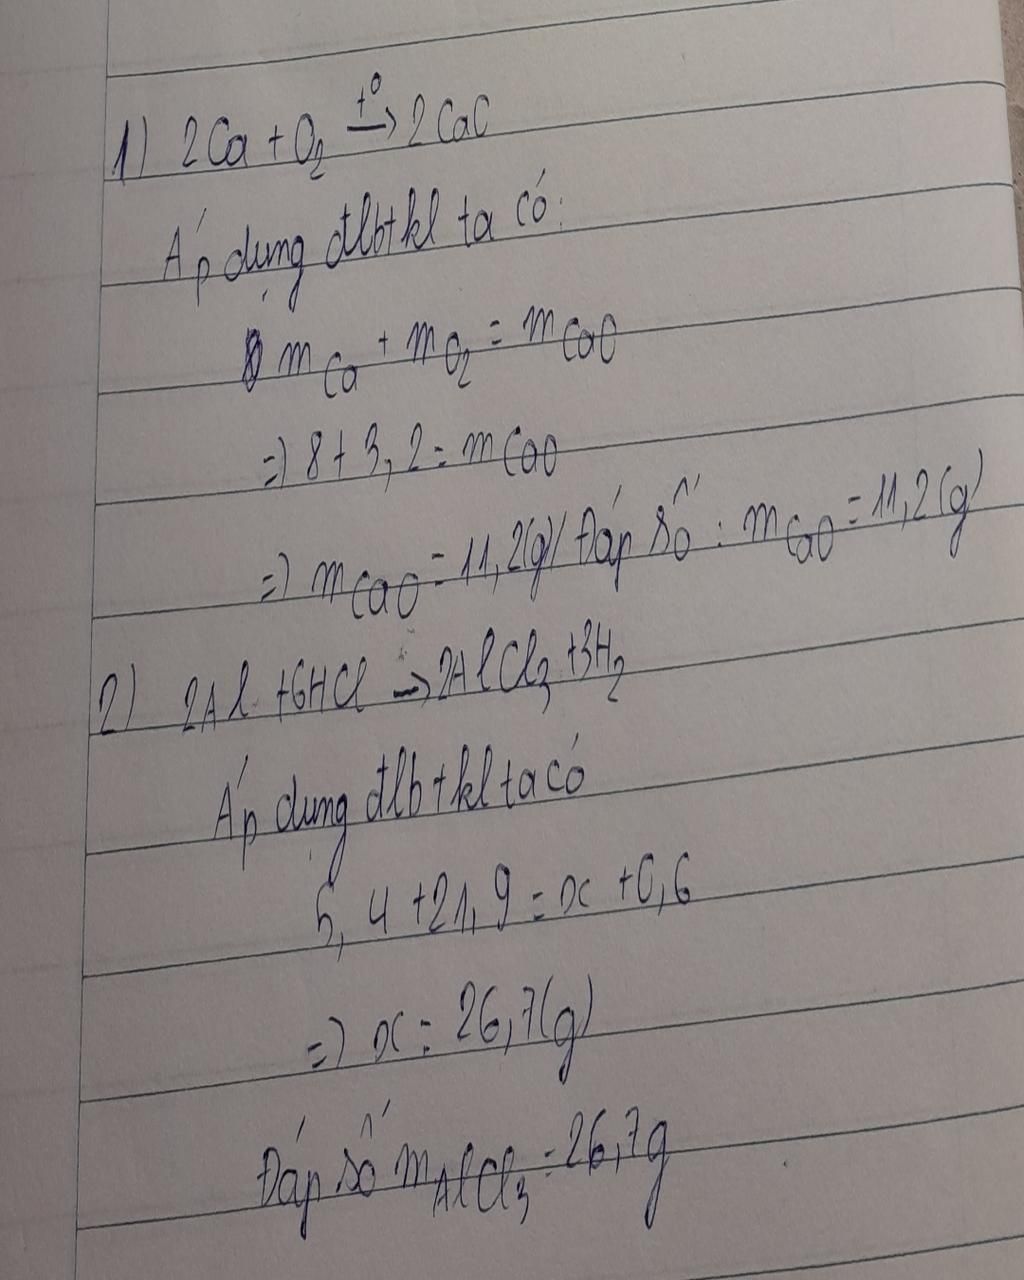 1) 2Ca + O₂ t⁰→ 2CaO
Áp dụng đlbtkl ta có:
m Ca + m O₂ = m CaO
=> 8 + 3,2 = m CaO
=> m CaO = 11,2(g) / Đáp số : m CaO = 11,2(g)
2) 2Al + 6HCl → 2AlCl₃ + 3H₂
Áp dụng đlbtkl ta có
5,4 + 21,9 = x + 0,6
=> x = 26,7(g)
Đáp số m AlCl₃ = 26,7g